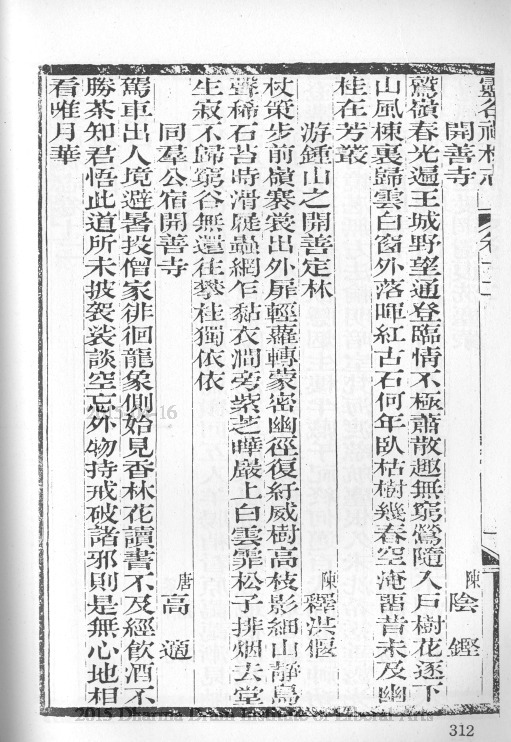 靈谷禪林志 卷十二
開善寺
陳 陰鏗
鷲嶺春光遍王城野望通登臨情不極蕭散趣無窮鶯隨入戶樹花逐下
山風棟裏歸雲白窗外落暉紅古石何年臥枯樹幾春空淹留昔未及幽
桂在芳叢
游鍾山之開善定林
陳 釋洪偃
杖策步前嶺褰裳出外扉輕蘿轉蒙密幽徑復紆威樹高枝影細山靜鳥
聲稀石苔時滑屣蟲網乍黏衣澗旁紫芝曄巖上白雲霏松子排烟去堂
生寂不歸窮谷無還往攀桂獨依依
同羣公宿開善寺
唐 高適
駕車出人境避暑投僧家徘徊龍象側始見香林花讀書不及經飲酒不
勝茶知君悟此道所未披袈裟談空忘外物持戒破諸邪則是無心地相
看唯月華
2015 Dharma Drum Institute of Liberal Arts
312